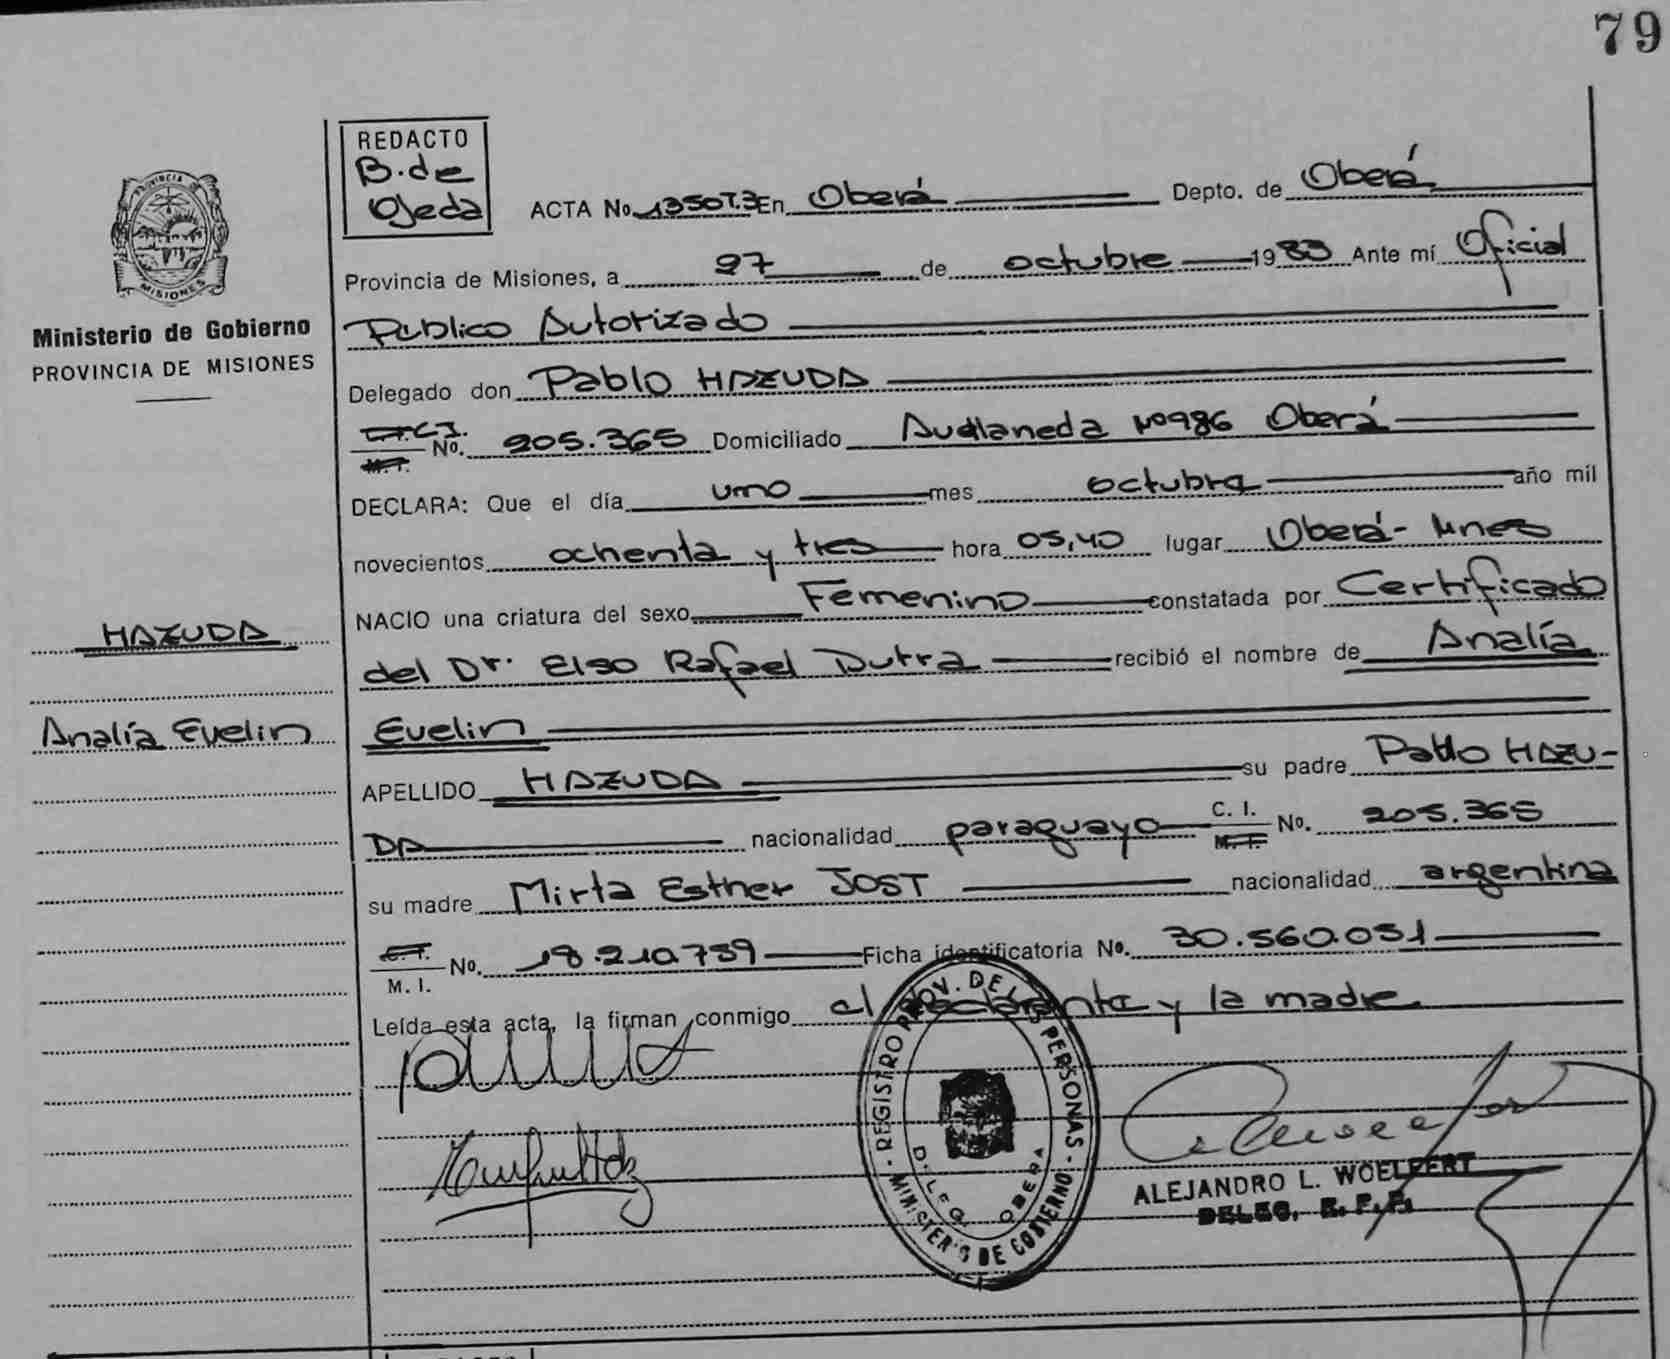 79
REDACTO
B. de
Ojeda
ACTA No. 1350T.3 En Oberá Depto. de Oberá
Provincia de Misiones, a 27 de octubre 1983 Ante mí Oficial
Público Autorizado
Delegado don Pablo HAZUDA
C.I. No. 205.365 Domiciliado Avellaneda Nº 986 Oberá
M. I.
DECLARA: Que el día uno mes octubre año mil
novecientos ochenta y tres hora 05,40 lugar Oberá - Mnes
NACIO una criatura del sexo Femenino constatada por Certificado
del Dr. Elso Rafael Dutra recibió el nombre de Analía
Evelin
APELLIDO HAZUDA su padre Pablo HAZU-
DA nacionalidad paraguayo C. I. M. I. No. 205.365
su madre Mirta Esther JOST nacionalidad argentina
C. I. M. I. No. 18.210.739 Ficha identificatoria No. 30.560.051
Leída esta acta, la firman conmigo el declarante y la madre
Ministerio de Gobierno
PROVINCIA DE MISIONES
HAZUDA
Analía Evelin
PROVINCIA DE
MISIONES
REGISTRO PROV. DE LAS PERSONAS
MINISTERIO DE GOBIERNO
DELEG. OBERA
ALEJANDRO L. WOELFERT
DELEG. R. P. P.